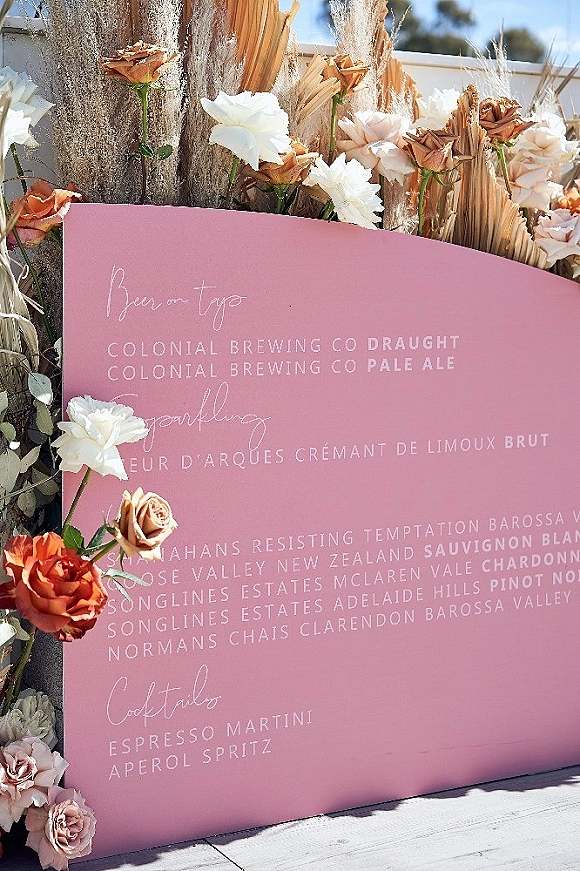 Beer on tap
COLONIAL BREWING CO DRAUGHT
COLONIAL BREWING CO PALE ALE
Sparkling
EUR D'ARQUES CRÉMANT DE LIMOUX BRUT
RESISTING TEMPTATION BAROSSA V
OSE VALLEY NEW ZEALAND SAUVIGNON BLAN
SONGLINES ESTATES MCLAREN VALE CHARDONN
SONGLINES ESTATES ADELAIDE HILLS PINOT NO
NORMANS CHAIS CLARENDON BAROSSA VALLEY
Cocktails
ESPRESSO MARTINI
APEROL SPRITZ